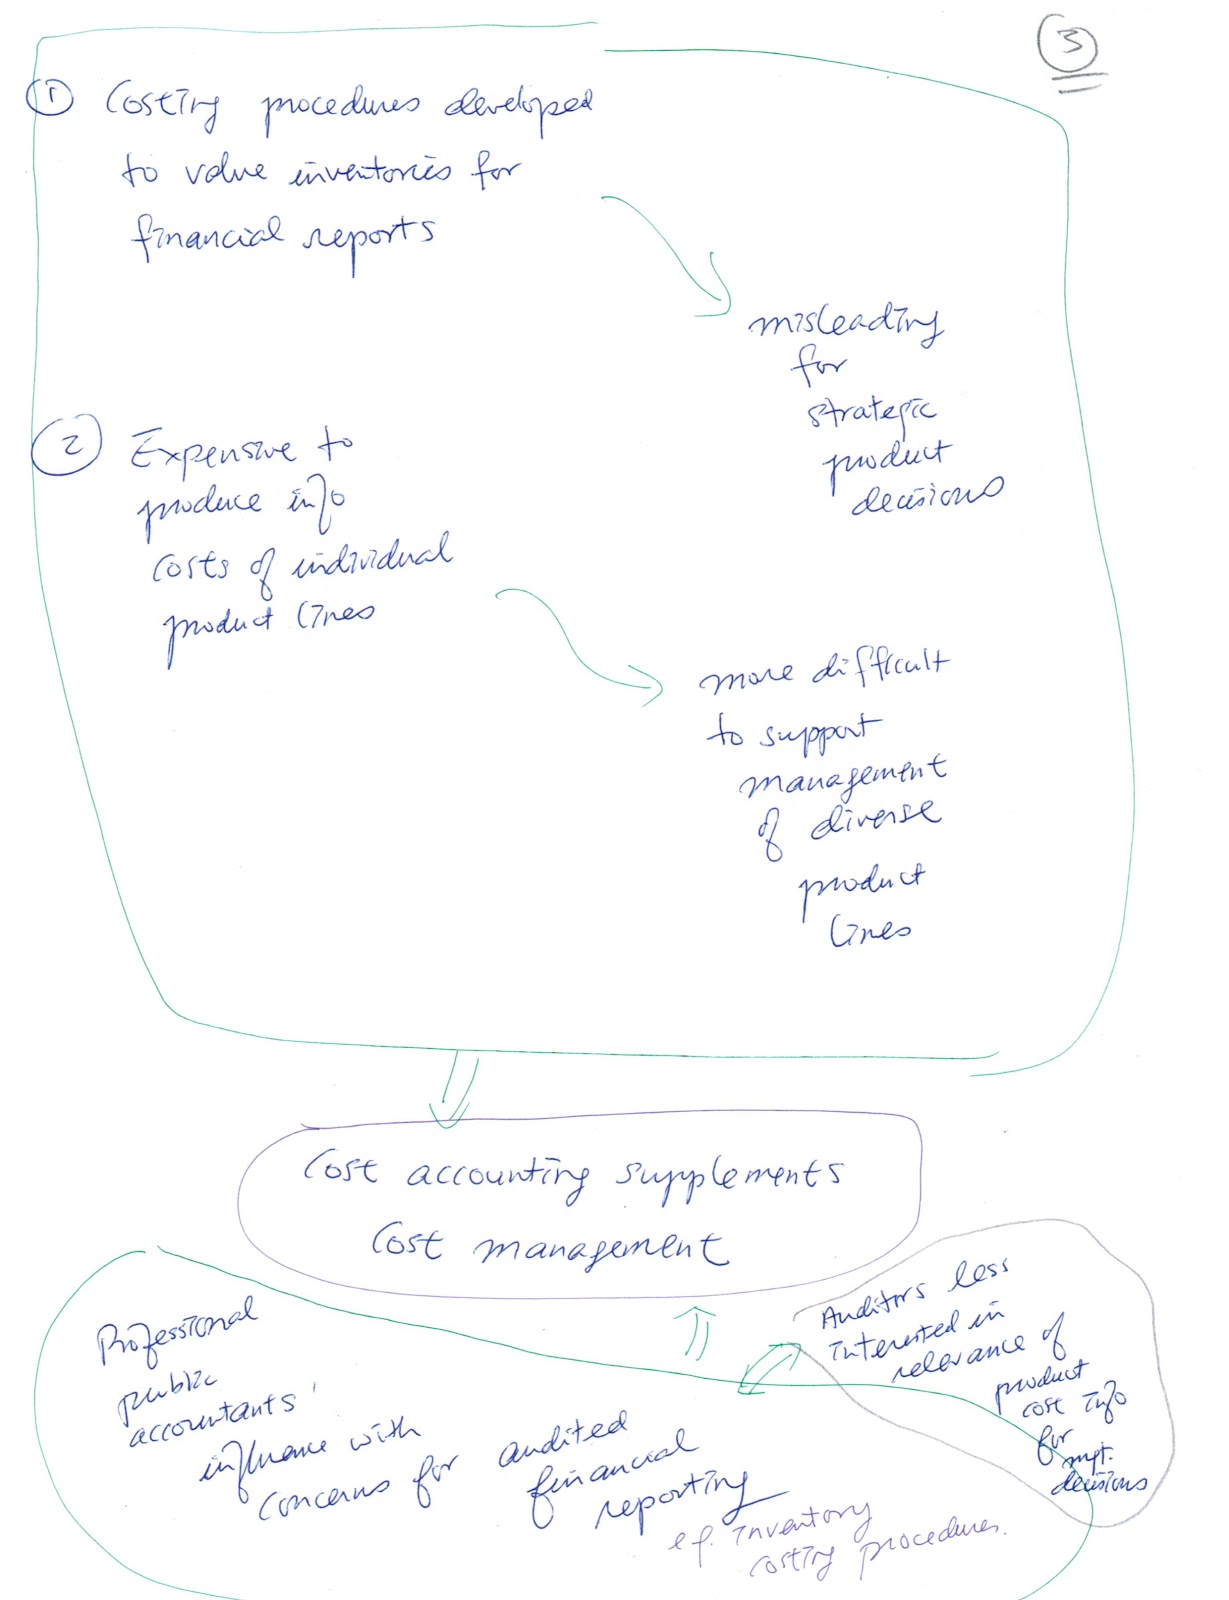 3
① Costing procedures developed
to value inventories for
financial reports
misleading
for
strategic
product
decisions
② Expensive to
produce info
costs of individual
product lines
more difficult
to support
management
of diverse
product
lines
Cost accounting supplements
Cost management
Auditors less
interested in
relevance of
product
cost info
for
mgt.
decisions
Professional
public
accountants'
influence with
concerns for audited
financial
reporting
eg. inventory
costing procedures.